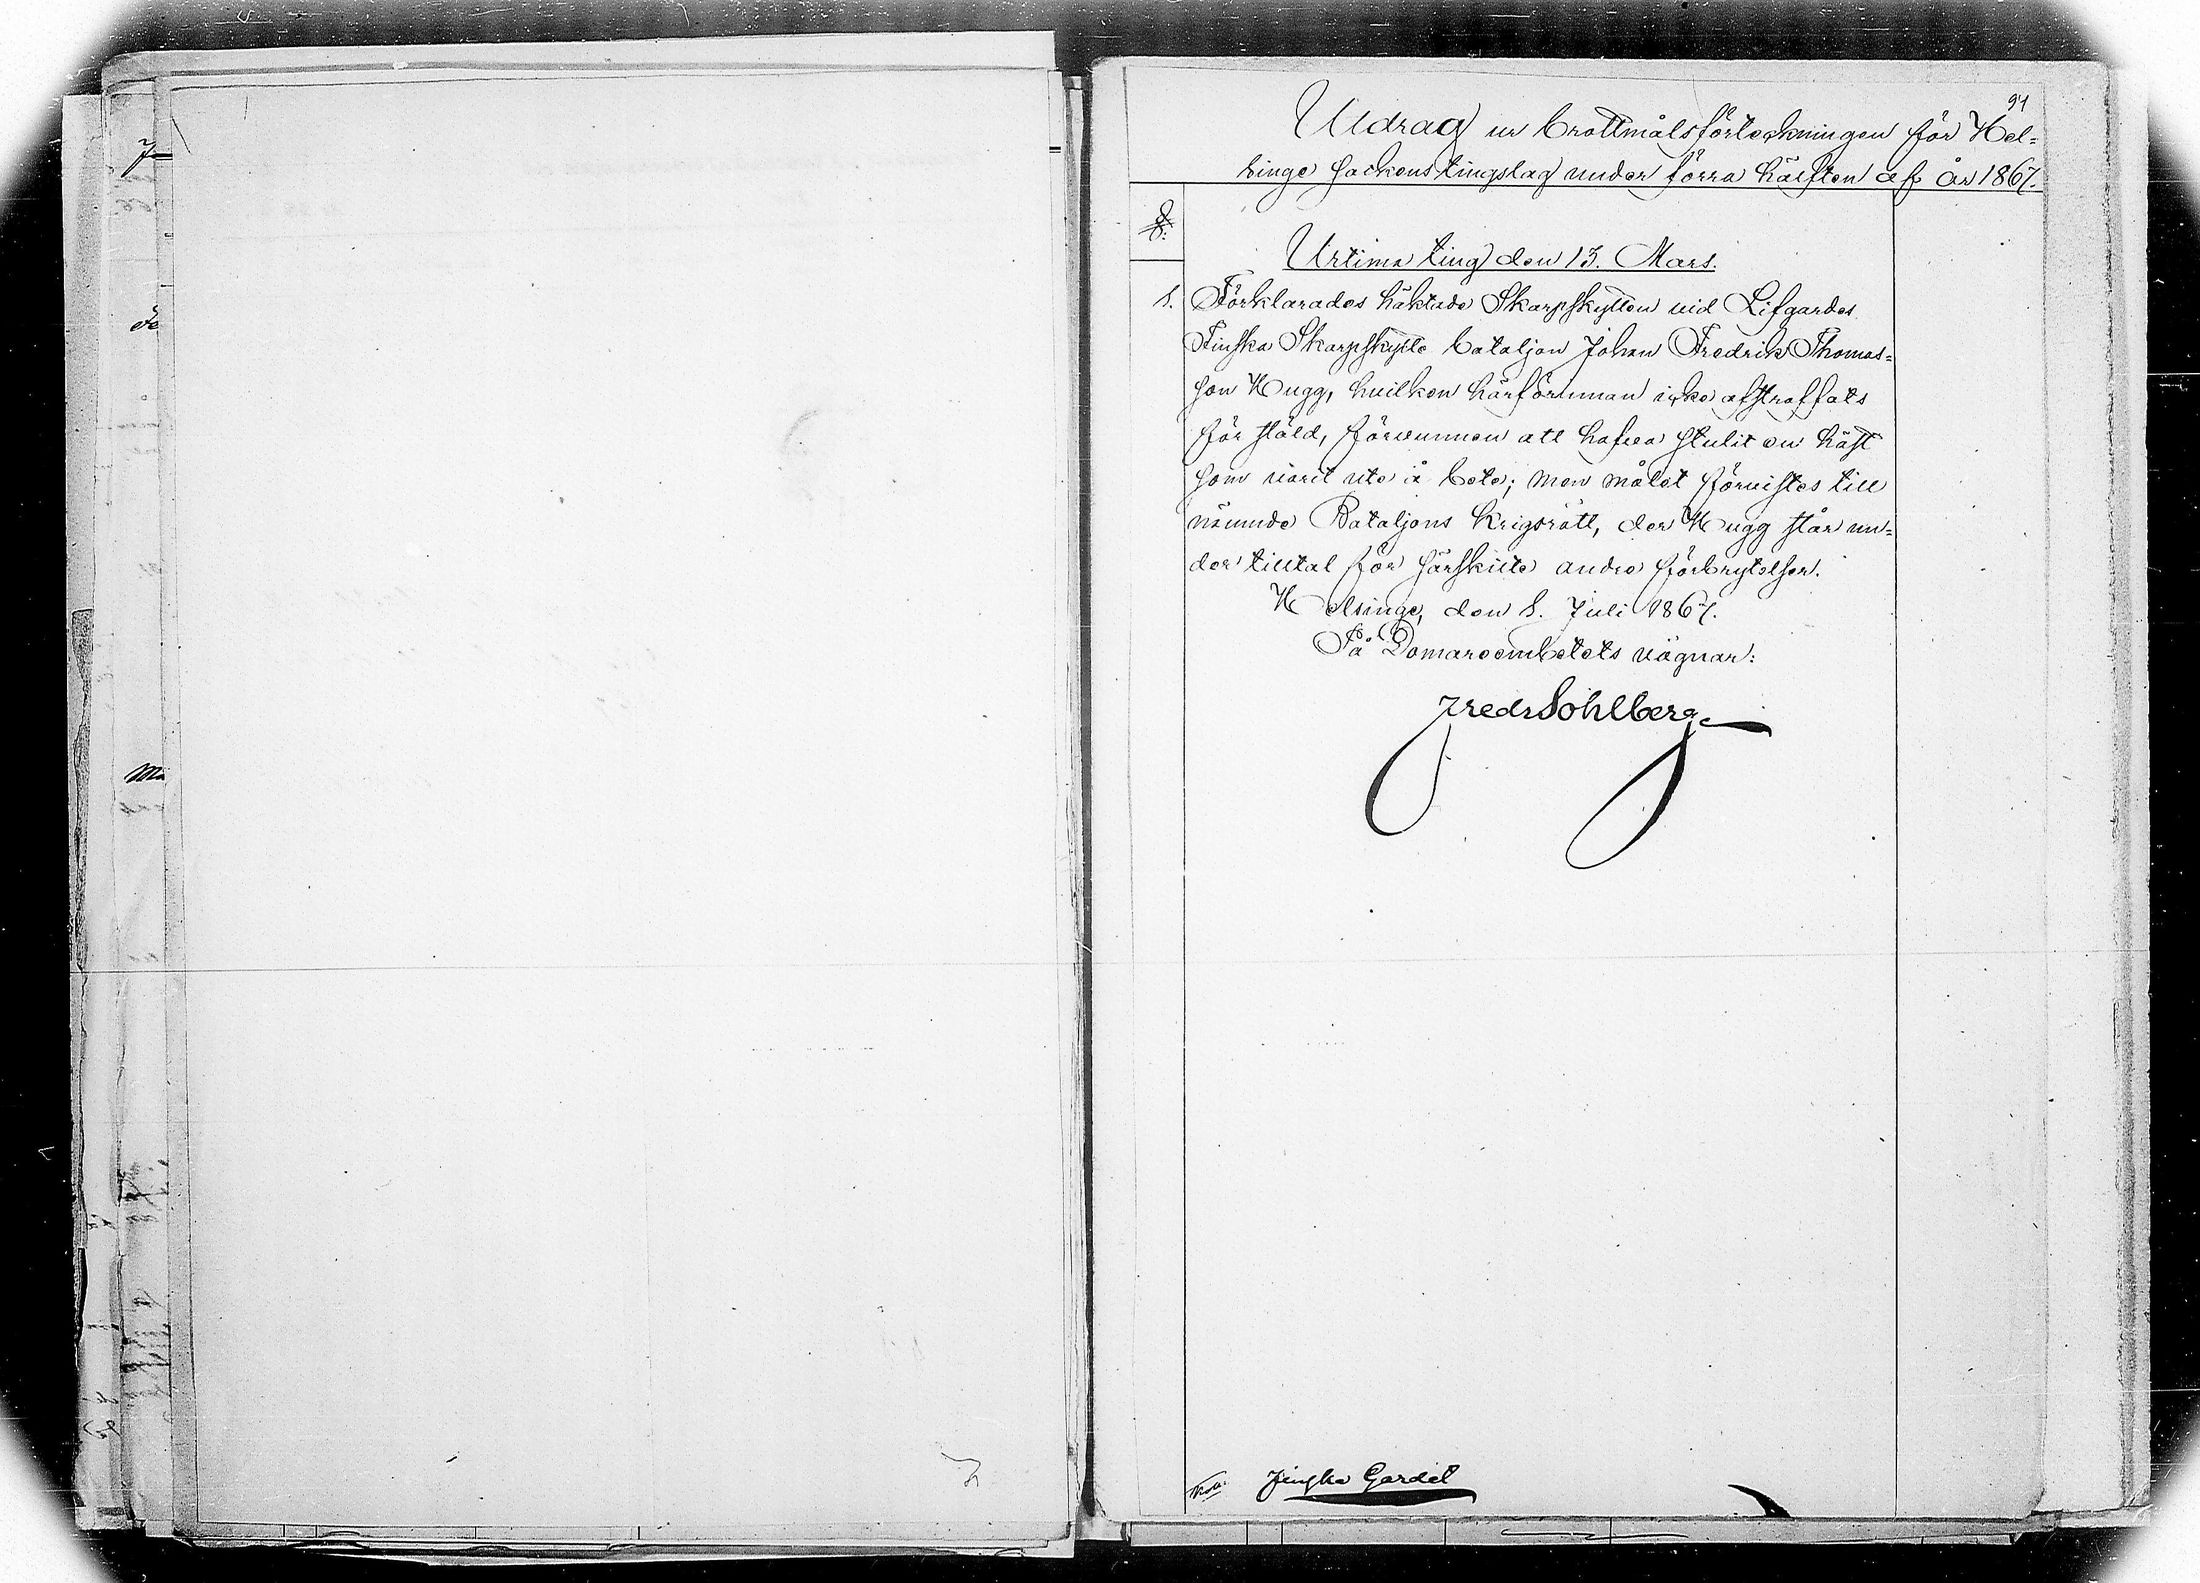 94
Utdrag ur brottmålsförteckningen för Hel-
singe sockens tingslag under förra hälften af år 1867.
Urtima ting den 13. Mars.
1. Förklarades häktade Skarpskytten vid Lifgardes
Finska Skarpskytte bataljon Johan Fredrik Thomas-
son Hugg, hvilken härförinnan icke afstraffats
för stöld, förvunnen att hafva stulit en häst
som varit ute å bete; men målet förvistes till
nämnde Bataljons Krigsrätt, der Hugg står un-
der tilltal för särskilte andra förbrytelser.
Helsinge, den 1. Juli 1867.
På Domareembetets vägnar:
Fredr Sohlberg
Finska Gardet